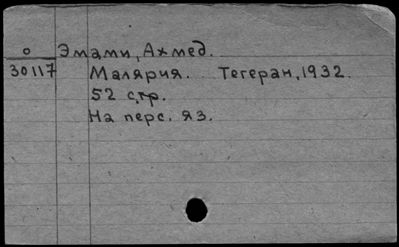 О Эмами, Ахмед.
30117 Малярия. Тегеран, 1932.
52 стр.
На перс. яз.